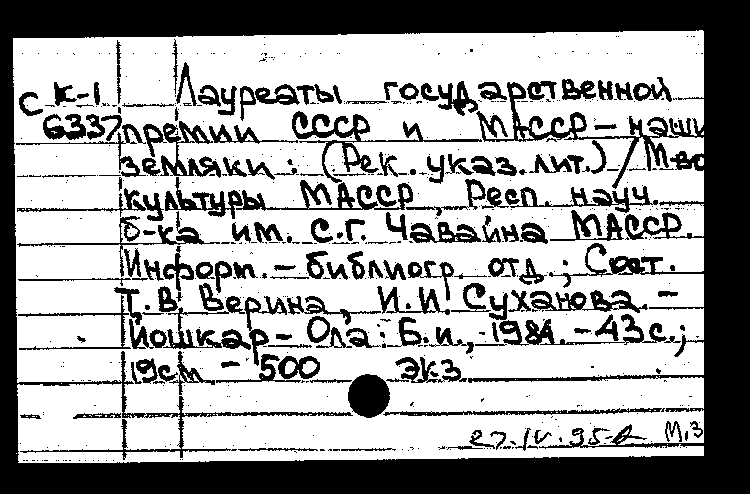 С К-1 Лауреаты государственной
6337 премии СССР и МАССР - наши
земляки : (Рек. указ. лит.) / М-во
культуры МАССР, Респ. науч.
б-ка им. С.Г. Чавайна МАССР.
Информ. - библиогр. отд.; Сост.
Т.В. Верина, И.И. Суханова. -
Йошкар-Ола : Б.и., 1984. - 43 с.;
19см - 500 экз
27.IV.95 М,З